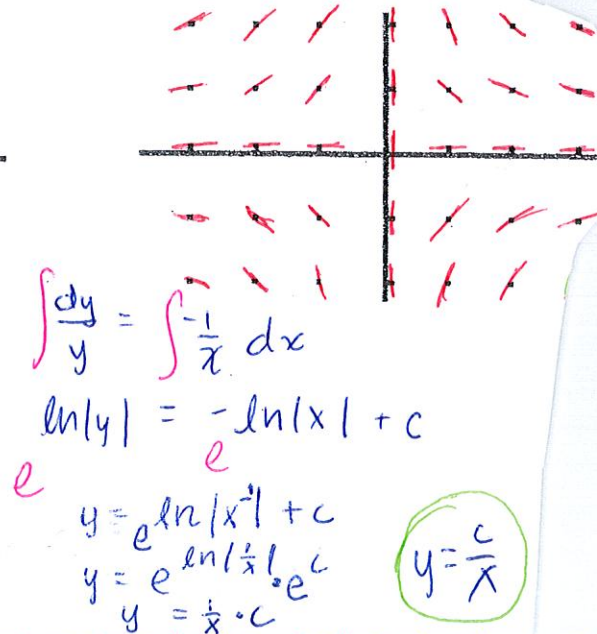 ∫ dy/y = ∫ -1/x dx
ln|y| = -ln|x| + c
e e
y = e ln|x⁻¹| + c
y = e^ln|1/x| · e^c
y = 1/x · c
y = c/x